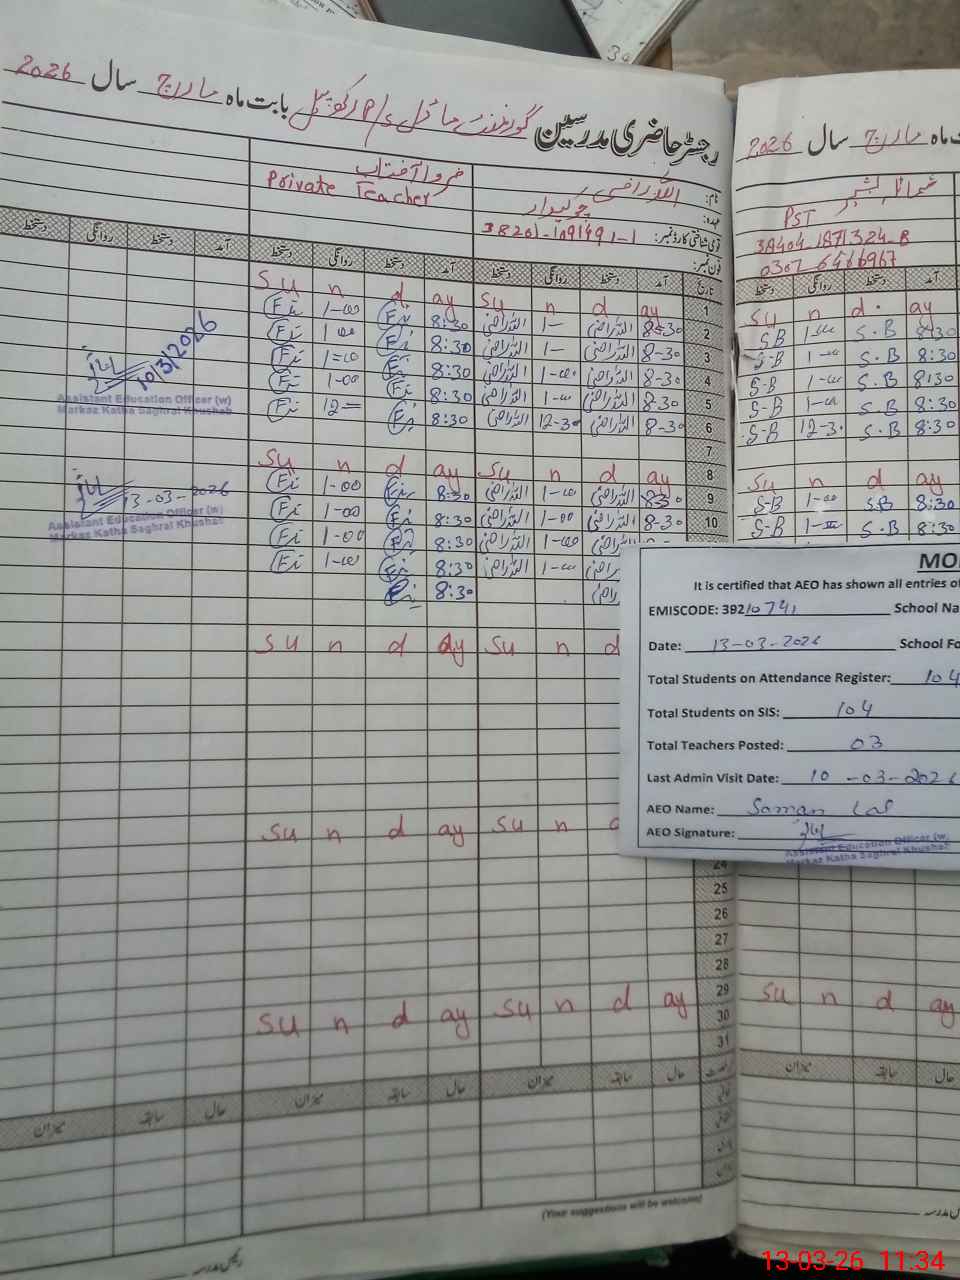 رجسٹر حاضری مدرسین گورنمنٹ ماڈل P/s رکھ بابت ماہ مارچ سال 2026
نام: اللہ راضی
عہدہ: چوکیدار
قومی شناختی کارڈ نمبر: 38201-1091491-1
فون نمبر:
ضروا آفتاب
Private Teacher
تاریخ آمد دستخط روانگی دستخط آمد دستخط روانگی دستخط آمد دستخط روانگی دستخط
1 Su n d ay Su n d ay
2 8-30 اللہ راضی 1- اللہ راضی 8:30 1-00
3 8-30 اللہ راضی 1- اللہ راضی 8:30 1-00
4 8-30 اللہ راضی 1-00 اللہ راضی 8:30 1-00
5 8-30 اللہ راضی 1-00 اللہ راضی 8:30 1-00
6 8-30 اللہ راضی 12-30 اللہ راضی 8:30 12=
7
8 Su n d ay Su n d ay
9 8-30 اللہ راضی 1-00 اللہ راضی 8:30 1-00
10 8-30 اللہ راضی 1-00 اللہ راضی 8:30 1-00
اللہ راضی 1-00 اللہ راضی 8:30 1-00
اللہ راضی 1-00 8:30 1-00
8:30
Su n d ay Su n d
Su n d ay Su n
24
25
26
27
28
29 Su n d ay Su n d ay
30
31
حال سابقہ میزان حال سابقہ میزان حال سابقہ میزان
(Your suggestions will be welcome)
رئیس مدرسہ
10/3/2026
Assistant Education Officer (w)
Markaz Katha Saghral Khushab
13-03-2026
Assistant Education Officer (w)
Markaz Katha Saghral Khushab
ماہ مارچ سال 2026
شمائلہ بشیر
PST
38404 1871324-8
0307 6466967
آمد دستخط روانگی دستخط
Su n d ay
S-B 1-00 S.B 8:30
S-B 1-00 S.B 8:30
S-B 1-00 S.B 8:30
S-B 1-00 S.B 8:30
S-B 12-30 S.B 8:30
Su n d ay
S-B 1-00 S.B 8:30
S-B 1- S.B 8:30
Su n d ay
حال سابقہ میزان
MO
It is certified that AEO has shown all entries of
EMISCODE: 39210741 School Na
Date: 13-03-2026 School Fo
Total Students on Attendance Register: 104
Total Students on SIS: 104
Total Teachers Posted: 03
Last Admin Visit Date: 10-03-2026
AEO Name: Saman
AEO Signature:
Assistant Education Officer (w)
Markaz Katha Saghral Khushab
13-03-26 11:34